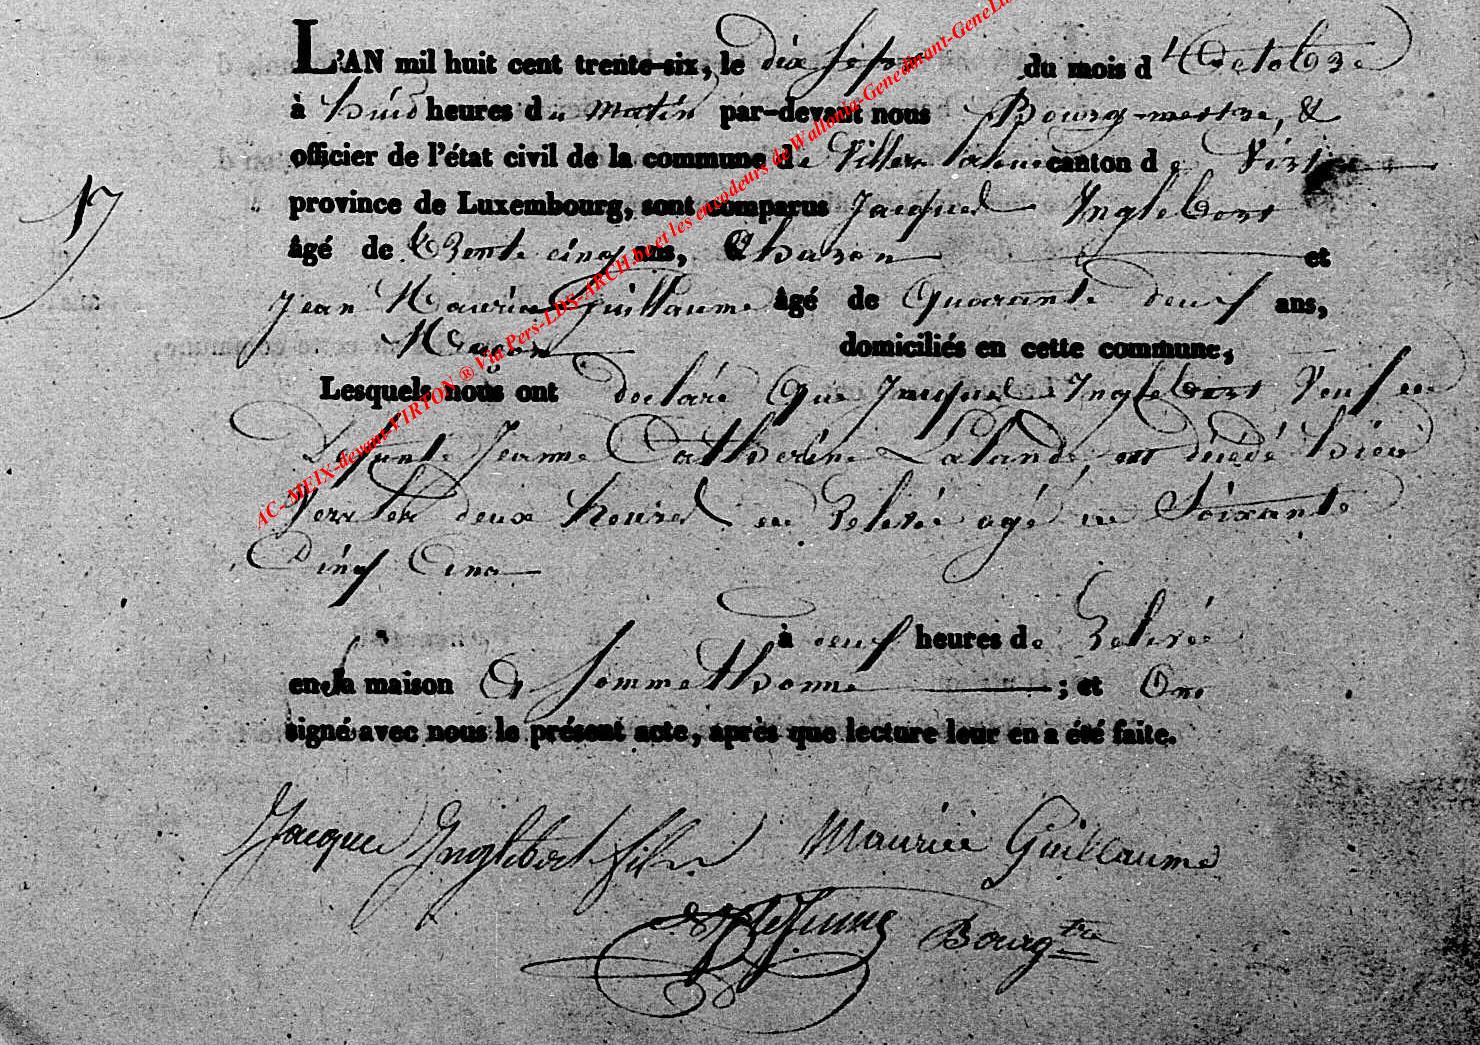 L'AN mil huit cent trente-six, le dix sept du mois d'Octobre
à huid heures du matin par-devant nous Bourg-mestre, &
officier de l'état civil de la commune de Villers canton de Virton
17
province de Luxembourg, sont comparus Jacques Inglebert
âgé de trente cinq ans, Charon et
Jean Maurice Guillaume âgé de quarante deux ans,
Maçon domiciliés en cette commune,
Lesquels nous ont déclaré que Jacques Inglebert Veuf de
Defunte Jeanne Catherine Lalande, est décédé hier
vers les deux heures de relevée agé de Soixante
Cinq Ans
à neuf heures de relevée
en sa maison à Sommethonne ; et Ont
signé avec nous le présent acte, après que lecture leur en a été faite.
Jacque Inglebert fils Maurice Guillaume
Bourgtre
AC-MEIX-devant-VIRTON ® Via Pers-LDS-ARCH.be et les encodeurs de Wallonia-Genedinant-GeneLux